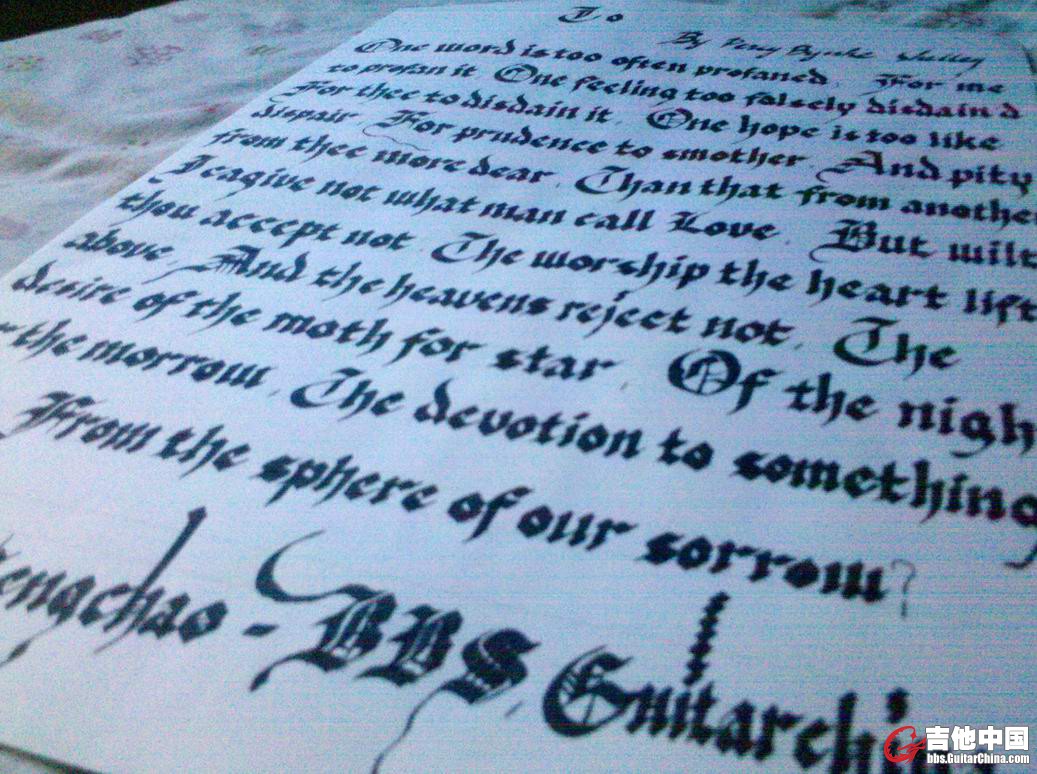 To
By Percy Bysshe Shelley
One word is too often profaned. For me
to profan it. One feeling too falsely disdain'd
For thee to disdain it. One hope is too like
dispair. For prudence to smother. And pity
from thee more dear. Than that from another
I cagive not what man call Love. But wilt
thou accept not. The worship the heart lift
above. And the heavens reject not. The
desire of the moth for star. Of the nigh
the morrow. The devotion to something
From the sphere of our sorrow?
engchao - BBS. Guitarchi
吉他中国
bbs.GuitarChina.com